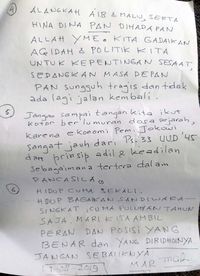 ④ ALANGKAH AIB & MALU, SERTA
HINA DINA PAN DIHADAPAN
ALLAH YME. KITA GADAIKAN
AQIDAH & POLITIK KITA
UNTUK KEPENTINGAN SESAAT,
SEDANGKAN MASA DEPAN
PAN sungguh tragis dan tidak
ada lagi jalan kembali.
⑤ Jangan sampai tangan kita ikut
kotor berlumuran dosa sejarah,
karena ekonomi Pem. Jokowi
sangat jauh dari Ps. 33 UUD '45
dan prinsip adil & keadilan
sebagaimana tertera dalam
PANCASILA.
⑥ HIDUP CUMA SEKALI.
HDUP BAGAIKAN SANDIWARA
SINGKAT, CUMA PULUHAN TAHUN
SAJA. MARI KITA AMBIL
PERAN DAN POSISI YANG
BENAR dan YANG DIRIDHOINYA
JANGAN SEBALIKNYA
MAR
2019